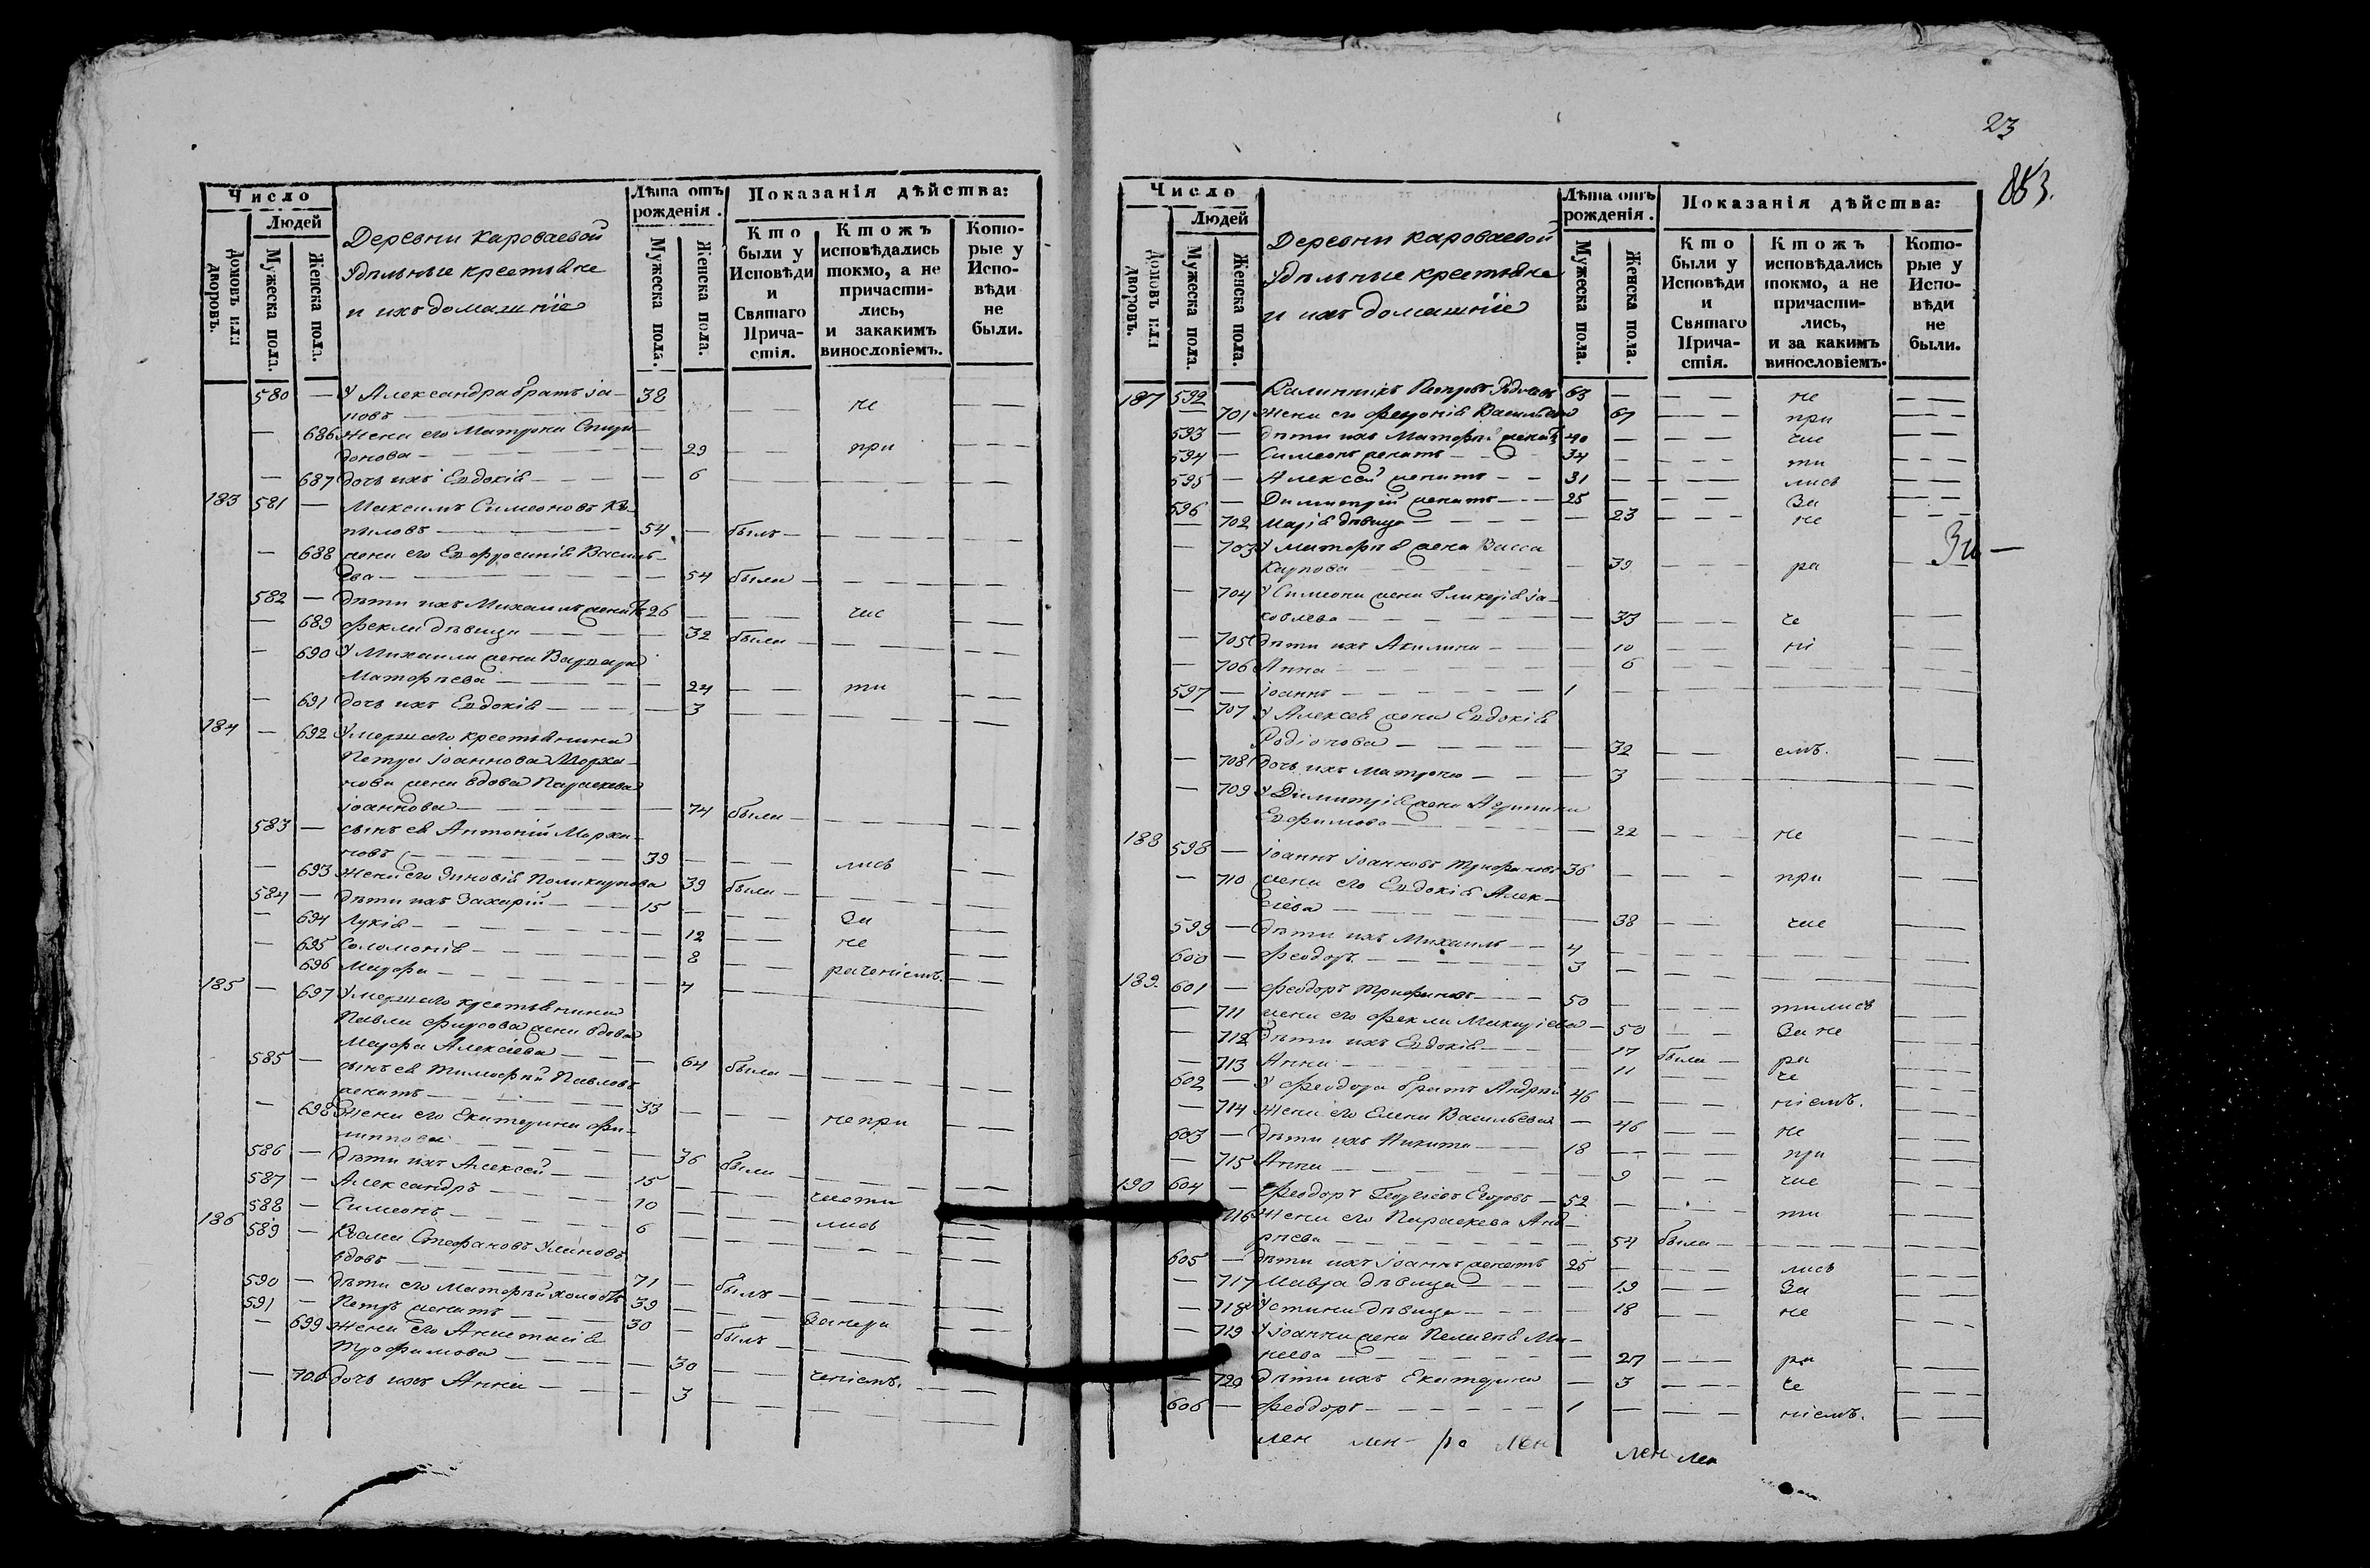 Число
Людей
Домовъ или дворовъ.
Мужеска пола.
Женска пола.
Деревни Короваевой
Удѣльные крестьяне
и ихъ домашніе
Лѣта отъ рожденія.
Мужеска пола.
Женска пола.
Показанія дѣйства:
Кто были у Исповѣди и Святаго Прича-стія.
Ктожъ исповѣдались токмо, а не причасти-лись, и закакимъ винословіемъ.
Кото-рые у Испо-вѣди не были.
580 — У Александра братъ Іа- 38 — — не —
новъ —
— 686 Жена его Матрона Спири-
донова — — 29 — — при — —
— 687 дочь ихъ Евдокія — — 6 — —
183 581 — Максимъ Симеоновъ
54 — былъ — —
— 688 жена его Евфросинія Василь-
ева — — 54 была — —
582 — дѣти ихъ Михаилъ женатъ 26 — — час — —
— 689 Фекла дѣвица — — 32 была — —
— 690 У Михаила жена Варвара
Матѳѣева — — 24 — — ти — —
— 691 дочь ихъ Евдокія — — 3 — —
184 — 692 Умершаго крестьянина
Петра Іоаннова Моржа-
нова жена вдова Параскева
Іоаннова — — 74 была — —
583 — сынъ ея Антоній Моржа-
новъ — 39 — — лись — —
— 693 Жена его Зиновія Поликарпова 39 была — —
584 — дѣти ихъ Захарій — 15 — — За — —
— 694 Лукія — — 12 — — не — —
— 695 Соломонія — — 8 — — раченіемъ. —
— 696 Марфа — — 4 — —
185 — 697 Умершаго крестьянина
Павла Фирсова жена вдова
Марфа Алексіева — — 64 была — —
585 — сынъ ея Тимофѣй Павловъ
женатъ — 33 — — непри — —
— 698 Жена его Екатерина Фи-
липпова — — 36 была — —
586 — дѣти ихъ Алексѣй — 15 — — части — —
587 — Александръ — 10 — — лись — —
588 — Симеонъ — 6 — —
186 589 — Стефановъ
вдовъ — 71 — былъ — —
590 — дѣти его Матѳѣй холостъ 39 — — Занера — —
591 — Петръ женатъ — 30 — былъ — —
— 699 Жена его Анастасія
Трофимова — — 30 — — ченіемъ. — —
— 700 дочь ихъ Анна — — 3 — —
23
853.
Число
Людей
Домовъ или дворовъ.
Мужеска пола.
Женска пола.
Деревни Короваевой
Удѣльные крестьяне
и ихъ домашніе
Лѣта отъ рожденія.
Мужеска пола.
Женска пола.
Показанія дѣйства:
Кто были у Исповѣди и Святаго Прича-стія.
Ктожъ исповѣдались токмо, а не причасти-лись, и за какимъ винословіемъ.
Кото-рые у Испо-вѣди не были.
187 592 — Калинникъ Петровъ 63 — — не — —
— 701 Жена его Февронія Васильева 67 — — при — —
593 — дѣти ихъ Матѳѣй женатъ 40 — — час — —
594 — Симеонъ женатъ — 34 — — ти — —
595 — Алексѣй женатъ — 31 — — лись — —
596 — Димитрій женатъ — 25 — — За — —
— 702 Марія дѣвица — — 23 — — не — —
— 703 У Матѳѣя жена Васса
Карпова — — 39 — — ра —
— 704 У Симеона жена Гликерія Іа-
ковлева — — 33 — — че — —
— 705 дѣти ихъ Акилина — — 10 — — ні — —
— 706 Анна — — 6 — —
597 — Іоаннъ — 1 — —
— 707 У Алексѣя жена Евдокія
Родіонова — — 32 — — емъ. — —
— 708 дочь ихъ Матрона — — 3 — —
— 709 У Димитрія жена
Евфимова — — 22 — — не — —
188 598 — Іоаннъ Іоанновъ Трифановъ 36 — — при — —
— 710 жена его Евдокія Алек-
сіева — — 38 — — час — —
599 — дѣти ихъ Михаилъ — 4 — —
600 — Феодоръ — 3 — —
189. 601 — Феодоръ Трифановъ — 50 — — тились — —
— 711 жена его Фекла Макаріева — 50 — — За не — —
— 712 дѣти ихъ Евдокія — — 17 была — ра —
— 713 Анна — — 11 — — че — —
602 — У Феодора братъ Андрѣй 46 — — ніемъ. — —
— 714 Жена его Елена Васильева — 46 — — не — —
603 — дѣти ихъ Никита — 18 — — при — —
— 715 Анна — — 9 — — час — —
190 604 — Феодоръ Георгіевъ Егоровъ — 52 — — ти — —
716 Жена его Параскева Анд-
рѣева — — 54 была — —
605 — дѣти ихъ Іоаннъ женатъ 25 — — лись — —
— 717 Мавра дѣвица — — 19 — — За — —
— 718 Устина дѣвица — — 18 — — не — —
— 719 У Іоанна жена Пелагія Ми-
неева — — 27 — — ра — —
— 720 дѣти ихъ Екатерина — 3 — — че — —
606 — Феодоръ — 1 — — ніемъ. — —